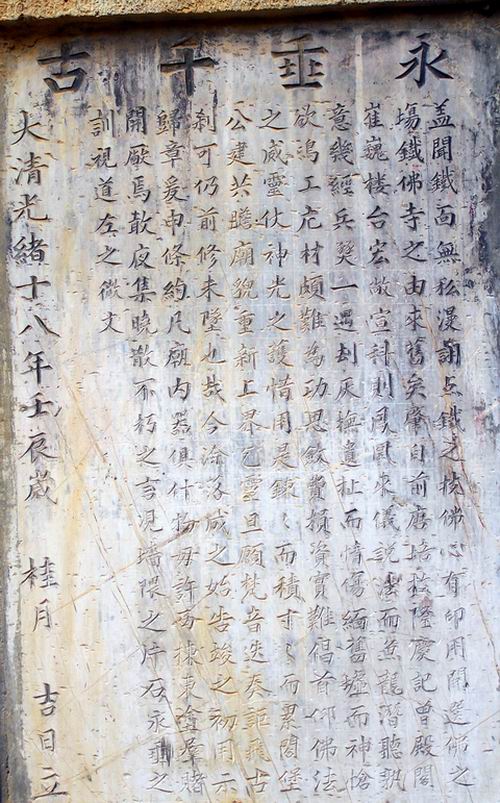 永垂千古
盖聞鐵面無私漫謝点鐵之技佛心有印用開選佛之
場鐵佛寺之由來舊矣肇自前唐培於隆慶記曾殿閣
崔巍楼台宏敞宣科則鳳凰來儀説法而魚龍潛聽孰
意幾經兵燹一遇刦灰撫遺址而情傷緬舊墟而神愴
欲鳩工庀材頗難為功思斂費損資實難倡首仰佛法
之威靈仗神光之護惜用是錬々而積寸々而累閤堡
公建共瞻廟貌重新上界乞靈且願梵音迭奏詎織古
刹可仍前修未墜也哉今淪落成之始告竣之初用示
歸章爰申條約凡廟内器俱什物毋許為棟東塗羣賭
開廠焉敢夜集曉散不朽之言現墻隈之片石永垂之
訓視道左之微文
大清光緒十八年壬辰歲 桂月 吉日立